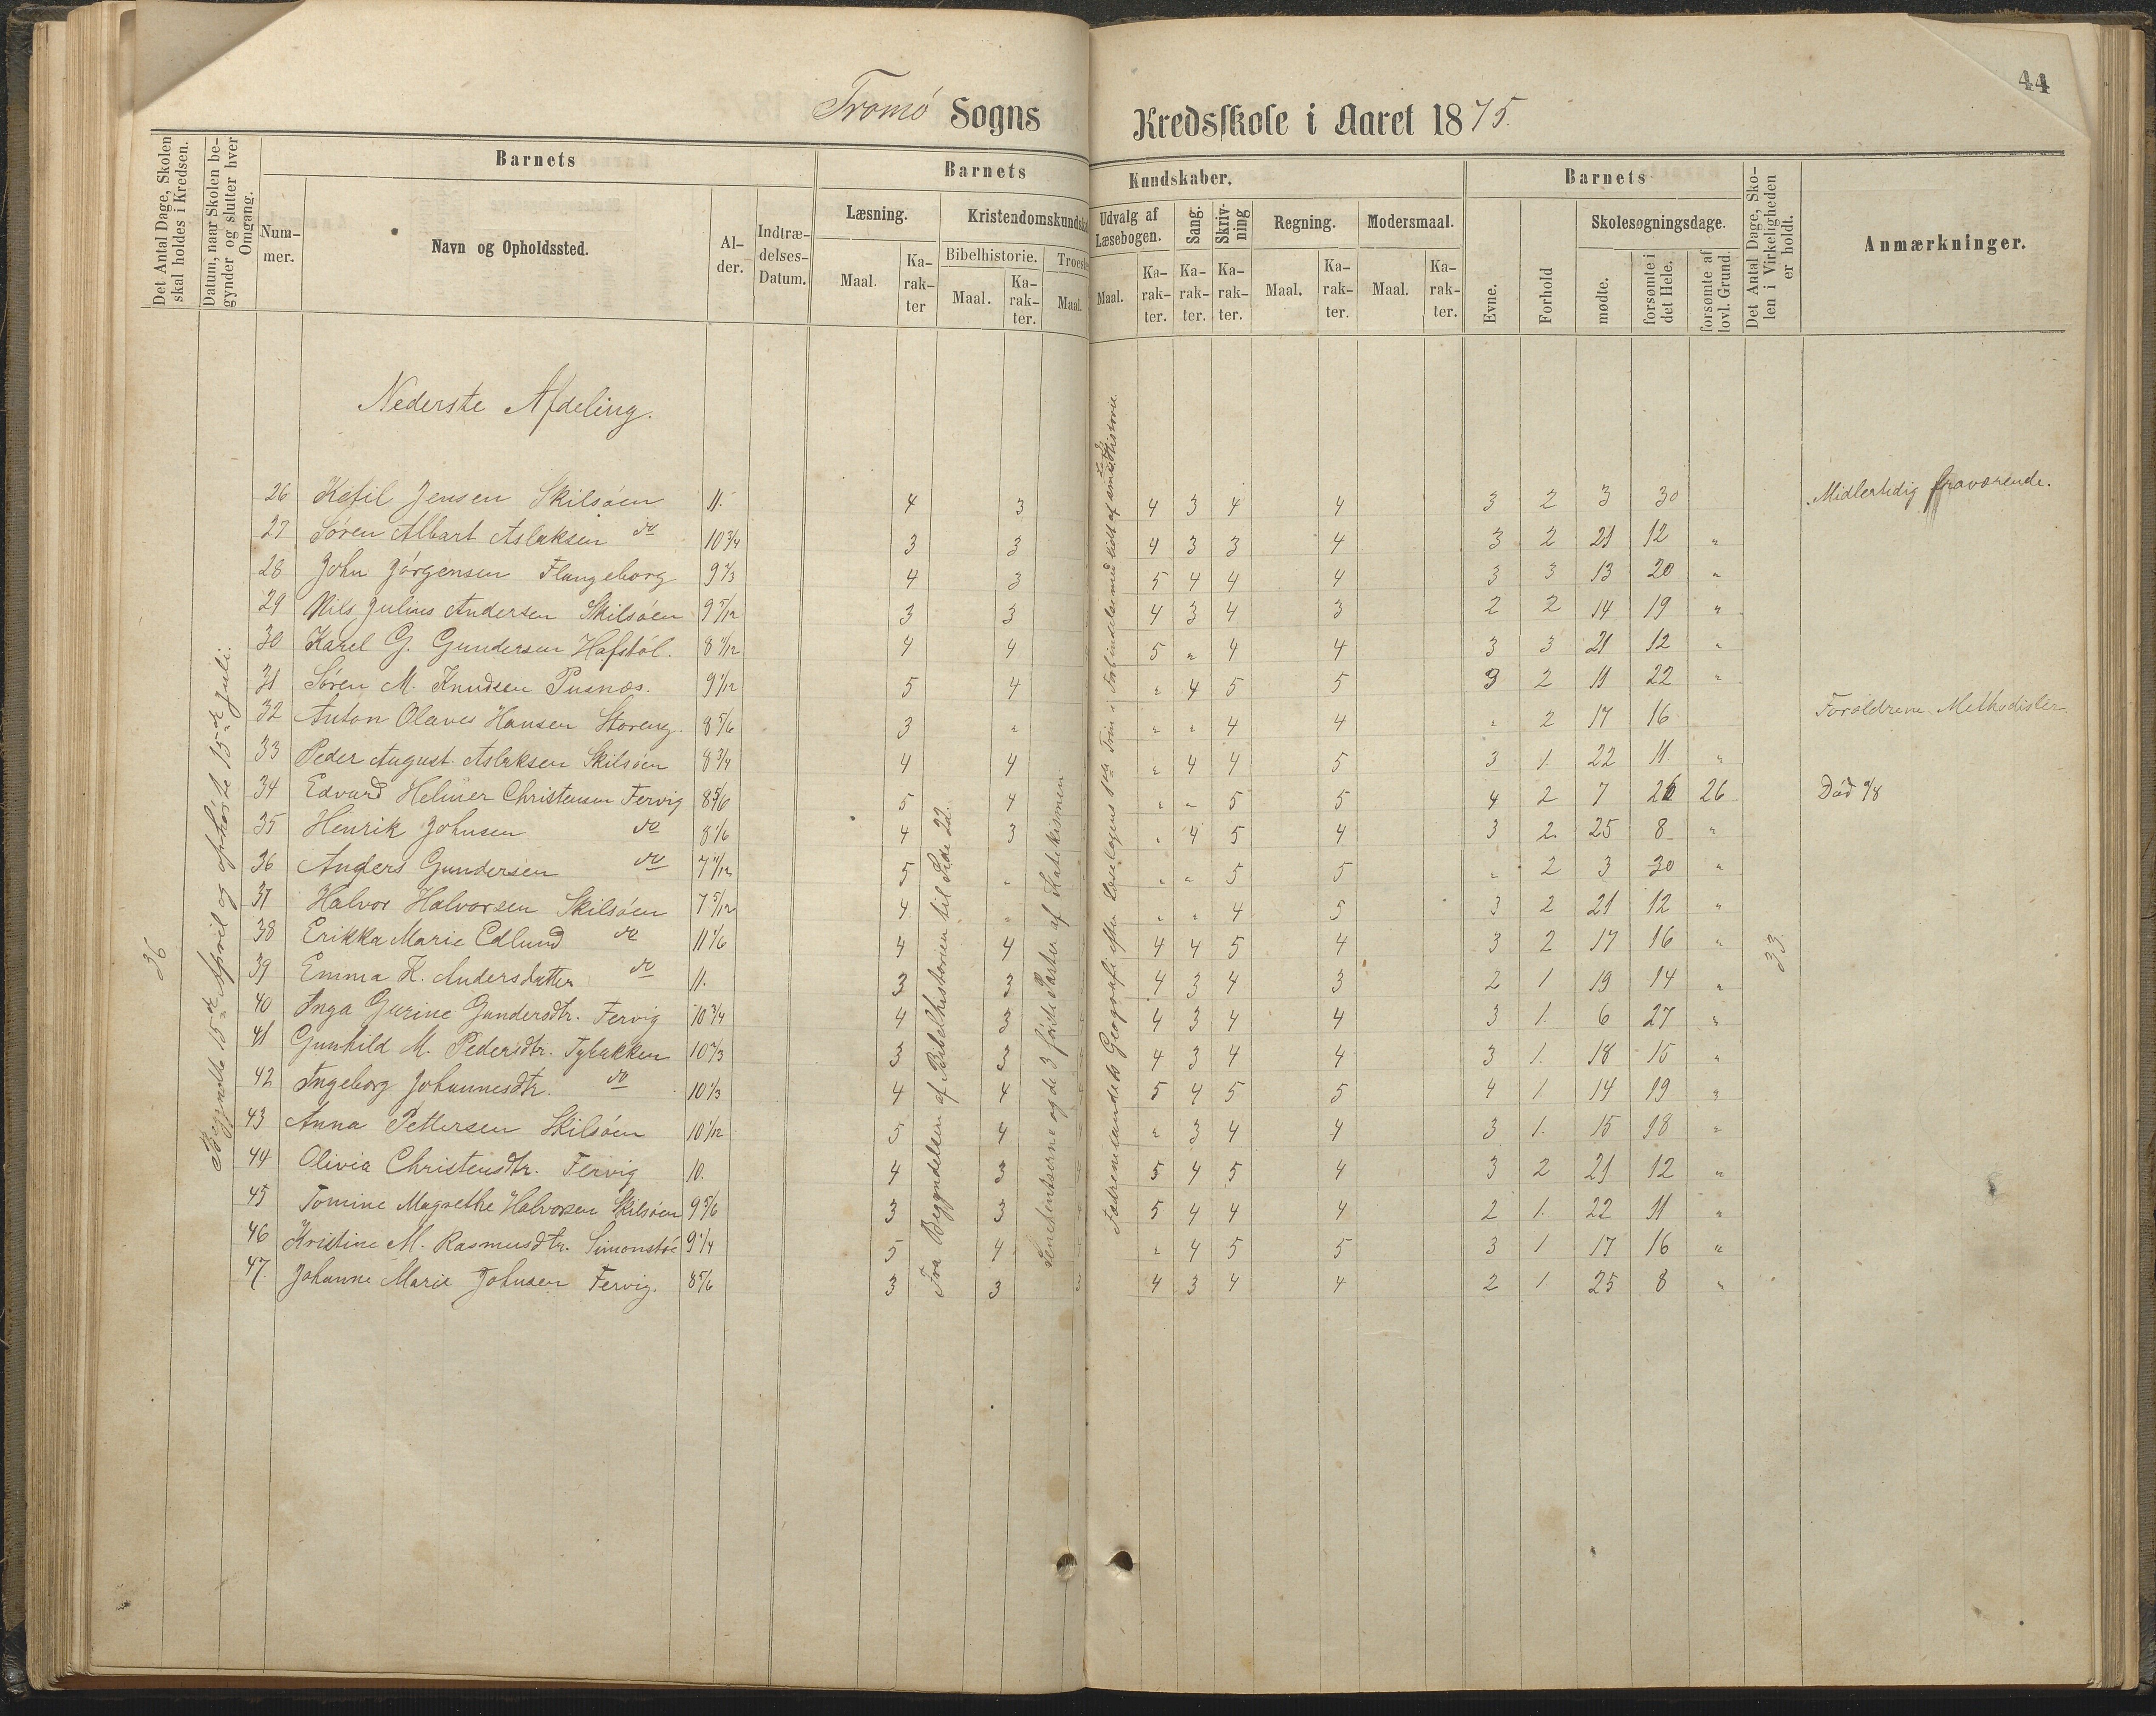 44
Tromø Sogns Kredsskole i Aaret 1875.
Det Antal Dage, Skolen skal holdes i Kredsen.
Datum, naar Skolen begynder og slutter hver Omgang.
Barnets
Num-mer.
Navn og Opholdssted.
Al-der.
Indtræ-delses-Datum.
Barnets Kundskaber.
Læsning.
Maal. Ka-rak-ter
Kristendomskundsk
Bibelhistorie.
Maal. Ka-rak-ter.
Troesl
Maal.
Udvalg af Læsebogen.
Maal. Ka-rak-ter.
Sang. Ka-rak-ter.
Skriv-ning Ka-rak-ter.
Regning.
Maal. Ka-rak-ter.
Modersmaal.
Maal. Ka-rak-ter.
Barnets
Evne.
Forhold
Skolesøgningsdage.
mødte.
forsømte i det Hele.
forsømte af lovl. Grund.
Det Antal Dage, Sko-len i Virkeligheden er holdt.
Anmærkninger.
Nederste Afdeling.
36
Begyndte 15de April og ophørte 15de Juli.
Fra Begyndelsen af Bibelhistorien til Side 22.
og de 3 første Parter af Katekismen
Fædrenelandets Geografi efter Læsebogens 1ste Trin i Forbindelse med lidt af
33
26 Ketil Jensen Skilsøen 11. 4 3 4 3 4 4 3 2 3 30 Midlertidig fraværende.
27 Søren Albart Aslaksen do 10 3/4 3 3 4 3 3 4 3 2 21 12 "
28 John Jørgensen Flangeborg 9 2/3 4 3 5 4 4 4 3 3 13 20 "
29 Nils Julius Andersen Skilsøen 9 5/12 3 3 4 3 4 3 2 2 14 19 "
30 Karel G. Gundersen Hafstøl. 8 11/12 4 4 5 " 4 4 3 3 21 12 "
31 Søren M. Knudsen Pusnæs. 9 1/12 5 4 " 4 5 5 3 2 11 22 "
32 Anton Olaves Hansen Støreng. 8 5/6 3 " " " 4 4 " 2 17 16 Forældrene Methodister.
33 Peder August Aslaksen Skilsøen 8 3/4 4 4 " 4 4 5 3 1. 22 11 "
34 Edvard Helmer Christensen Fervig 8 5/6 5 4 " " 5 5 4 2 7 26 26 Død 9/8
35 Henrik Johnsen do 8 1/6 4 3 " 4 5 4 3 2. 25 8 "
36 Anders Gundersen do 7 11/12 5 " " " 5 5 " 2 3 30 "
37 Halvor Halvorsen Skilsøen 7 5/12 4 " " " 4 5 3 2 21 12 "
38 Erikka Marie Edlund do 11 1/6 4 4 4 4 5 4 3 2 17 16 "
39 Emma K. Andersdatter do 11. 3 3 4 3 4 3 2 1 19 14 "
40 Inga Gurine Gundersdtr. Fervig 10 3/4 4 3 4 3 4 4 3 1. 6 27 "
41 Gunhild M. Pedersdtr. Tybakken 10 2/3 3 3 4 3 4 4 3 1. 18 15 "
42 Ingeborg Johannesdtr. do 10 1/3 4 4 5 4 5 5 4 1. 14 19 "
43 Anna Pettersen Skilsøen 10 1/12 3 4 " 3 4 4 3 1. 15 18 "
44 Olivia Christensdtr. Fervig 10. 4 3 5 4 5 4 3 2 21 12 "
45 Tomine Magrethe Halvorsen Skilsøen 9 5/6 3 3 5 4 4 4 2 1. 22 11 "
46 Kristine M. Rasmusdtr. Simonstø 9 1/4 5 4 " 4 5 5 3 1 17 16 "
47 Johanne Marie Johnsen Fervig. 8 5/6 3 3 3 4 3 4 4 2 1. 25 8 "